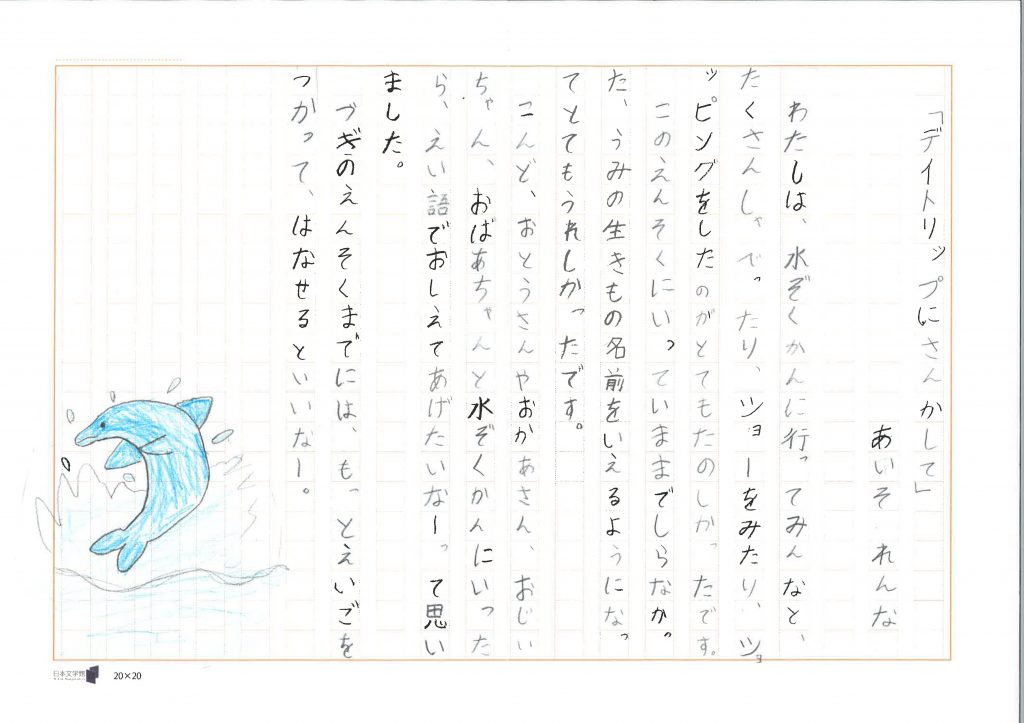 「デイトリップにさんかして」
あいそ れんな
わたしは、水ぞくかんに行ってみんなと、
たくさんしゃべったり、ショーをみたり、ショ
ッピングをしたのがとてもたのしかったです。
このえんそくにいっていままでしらなかっ
た、うみの生きもの名前をいえるようになっ
てとてもうれしかったです。
こんど、おとうさんやおかあさん、おじい
ちゃん、おばあちゃんと水ぞくかんにいった
ら、えい語でおしえてあげたいなーって思い
ました。
つぎのえんそくまでには、もっとえいごを
つかって、はなせるといいなー。
日本文学館
20×20